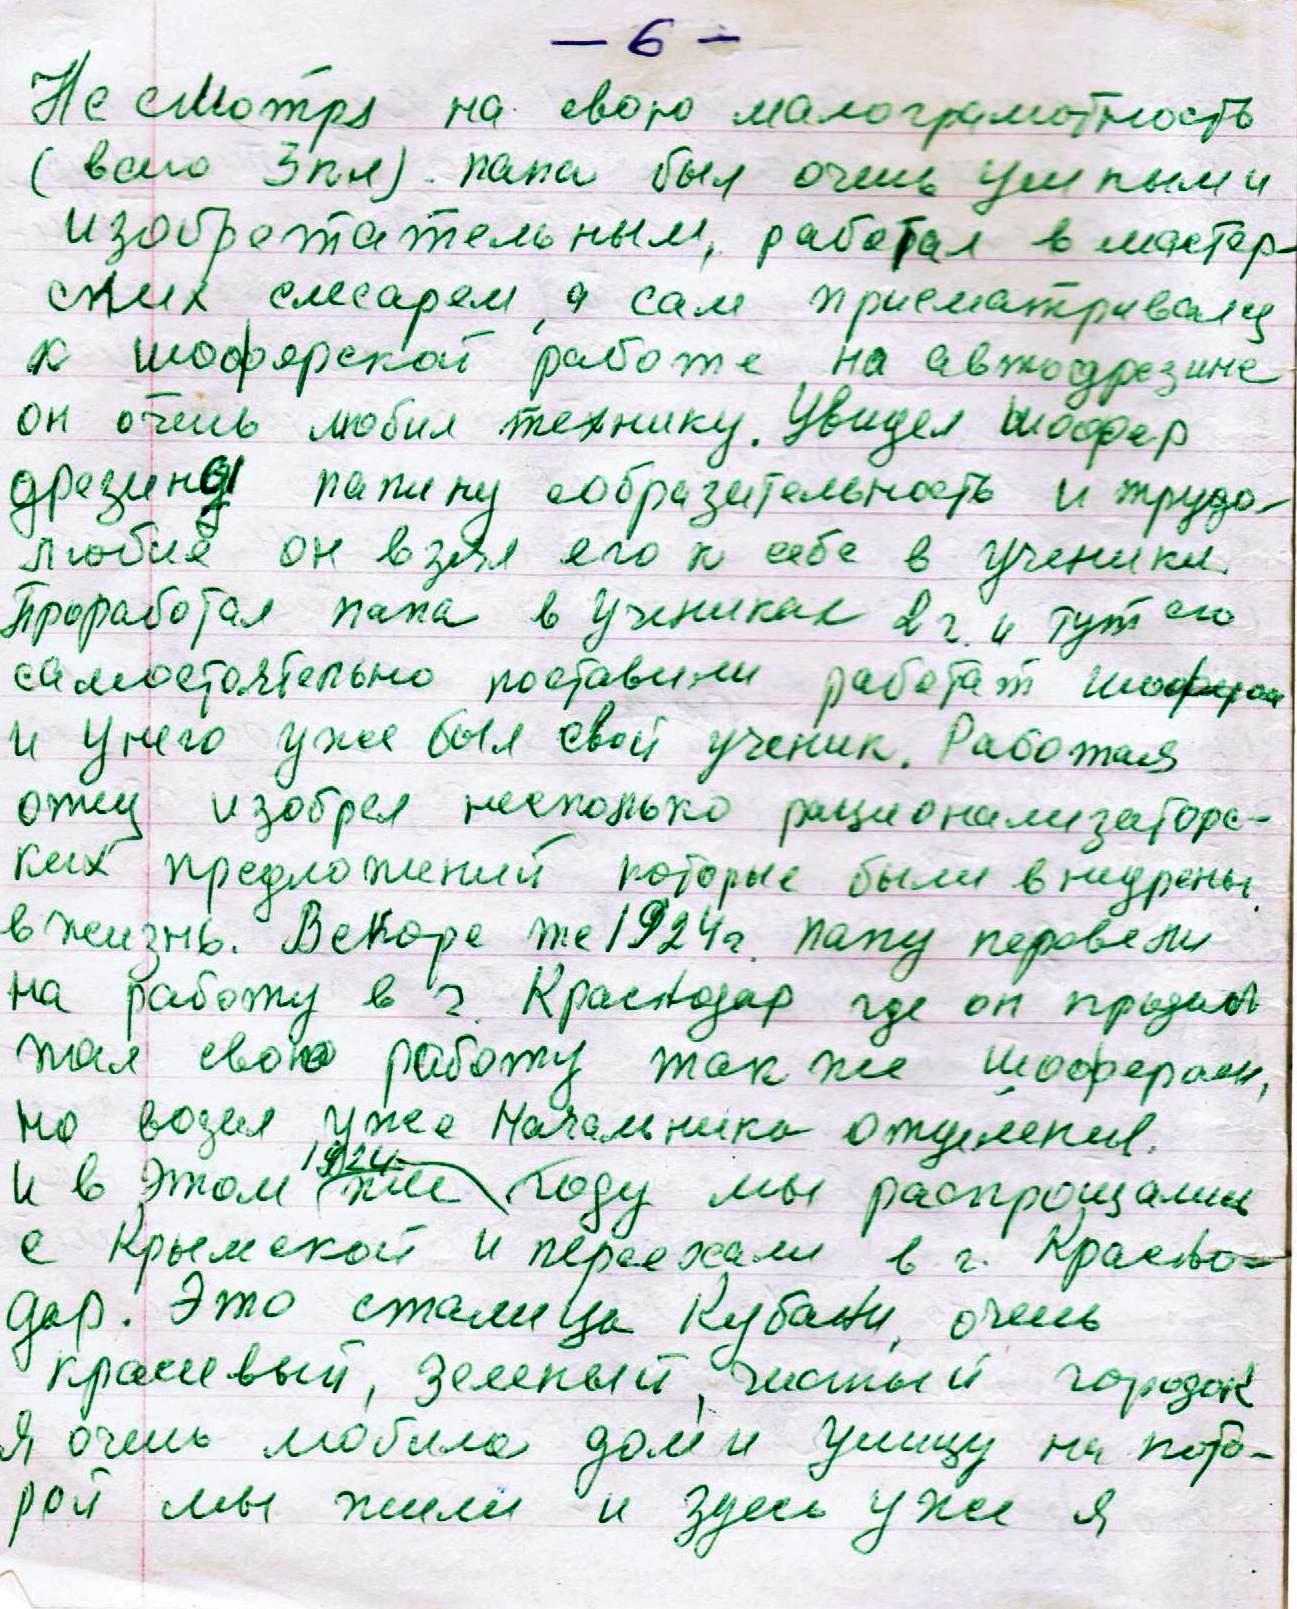 — 6 —
Не смотря на свою малограмотность
(всего 3 кл). папа был очень умным и
изобретательным, работал в мастер-
ских слесарем, а сам присматривалц
к шоферской работе на автодрезине
он очень любил технику. Увидел шофер
дрезины папину сообразительность и трудо-
любие он взял его к себе в ученики.
Проработал папа в учениках 2 г. и тут его
самостоятельно поставили работат шофером
и у него уже был свой ученик. Работая
отец изобрел несколько рационализаторс-
ких предложений которые были внедрены
в жизнь. Вскоре же 1924 г. папу перевели
на работу в г. Краснодар где он продол
жал свою работу так же шофером,
но возил уже начальника отделения.
И в этом 1924 же году мы распрощались
с Крымской и переехали в г. Красно-
дар. Это столица Кубани, очень
красивый, зеленый, чистый городок
Я очень любила дом и улицу на кото-
рой мы жили и здесь уже я